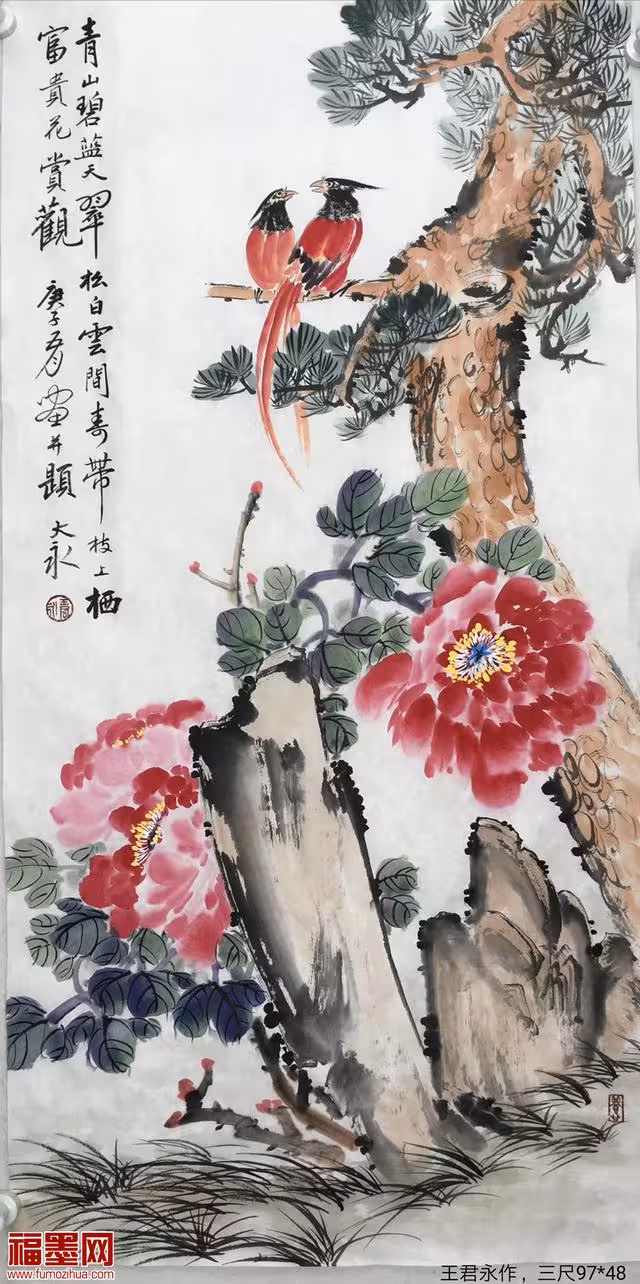 青山碧蓝天翠松白雲間寿带枝上栖
富貴花赏觀
庚子春月畫并題 大永
福墨网
www.fumozihua.com
王君永作，三尺97*48